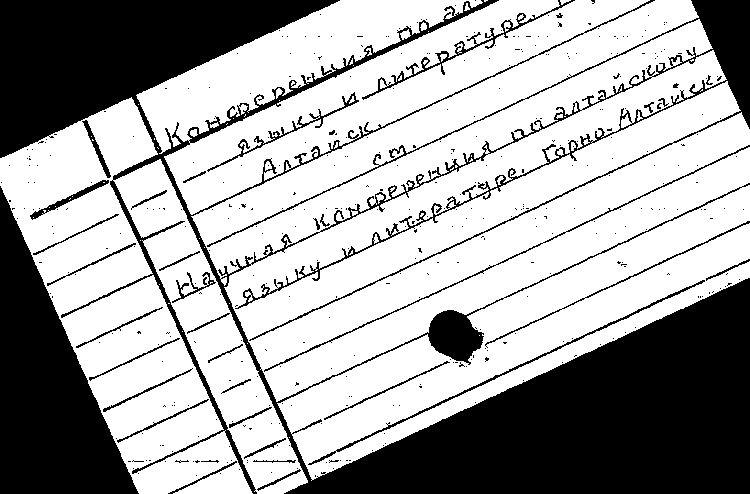 Конференция по
языку и литературе.
Алтайск.
см.
Научная конференция по алтайскому
языку и литературе. Горно-Алтайск.